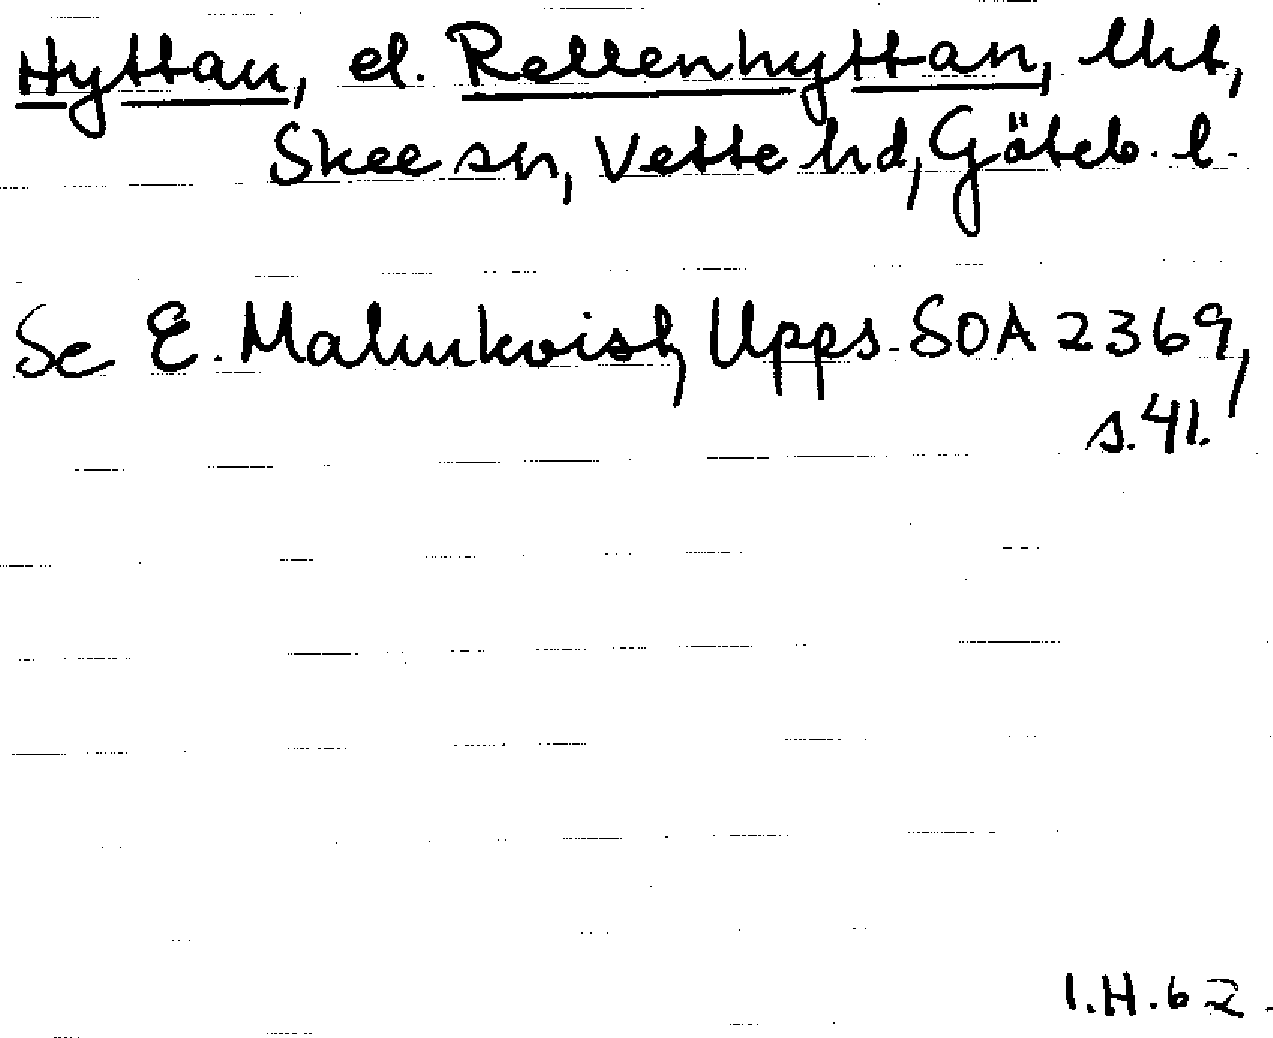 Hyttan, el. Rellenhyttan, lht,
Skee sn, Vette hd, Göteb. l.
Se E. Malmkvist, Upps. SOA 2369,
s. 41.
I.H. 62.